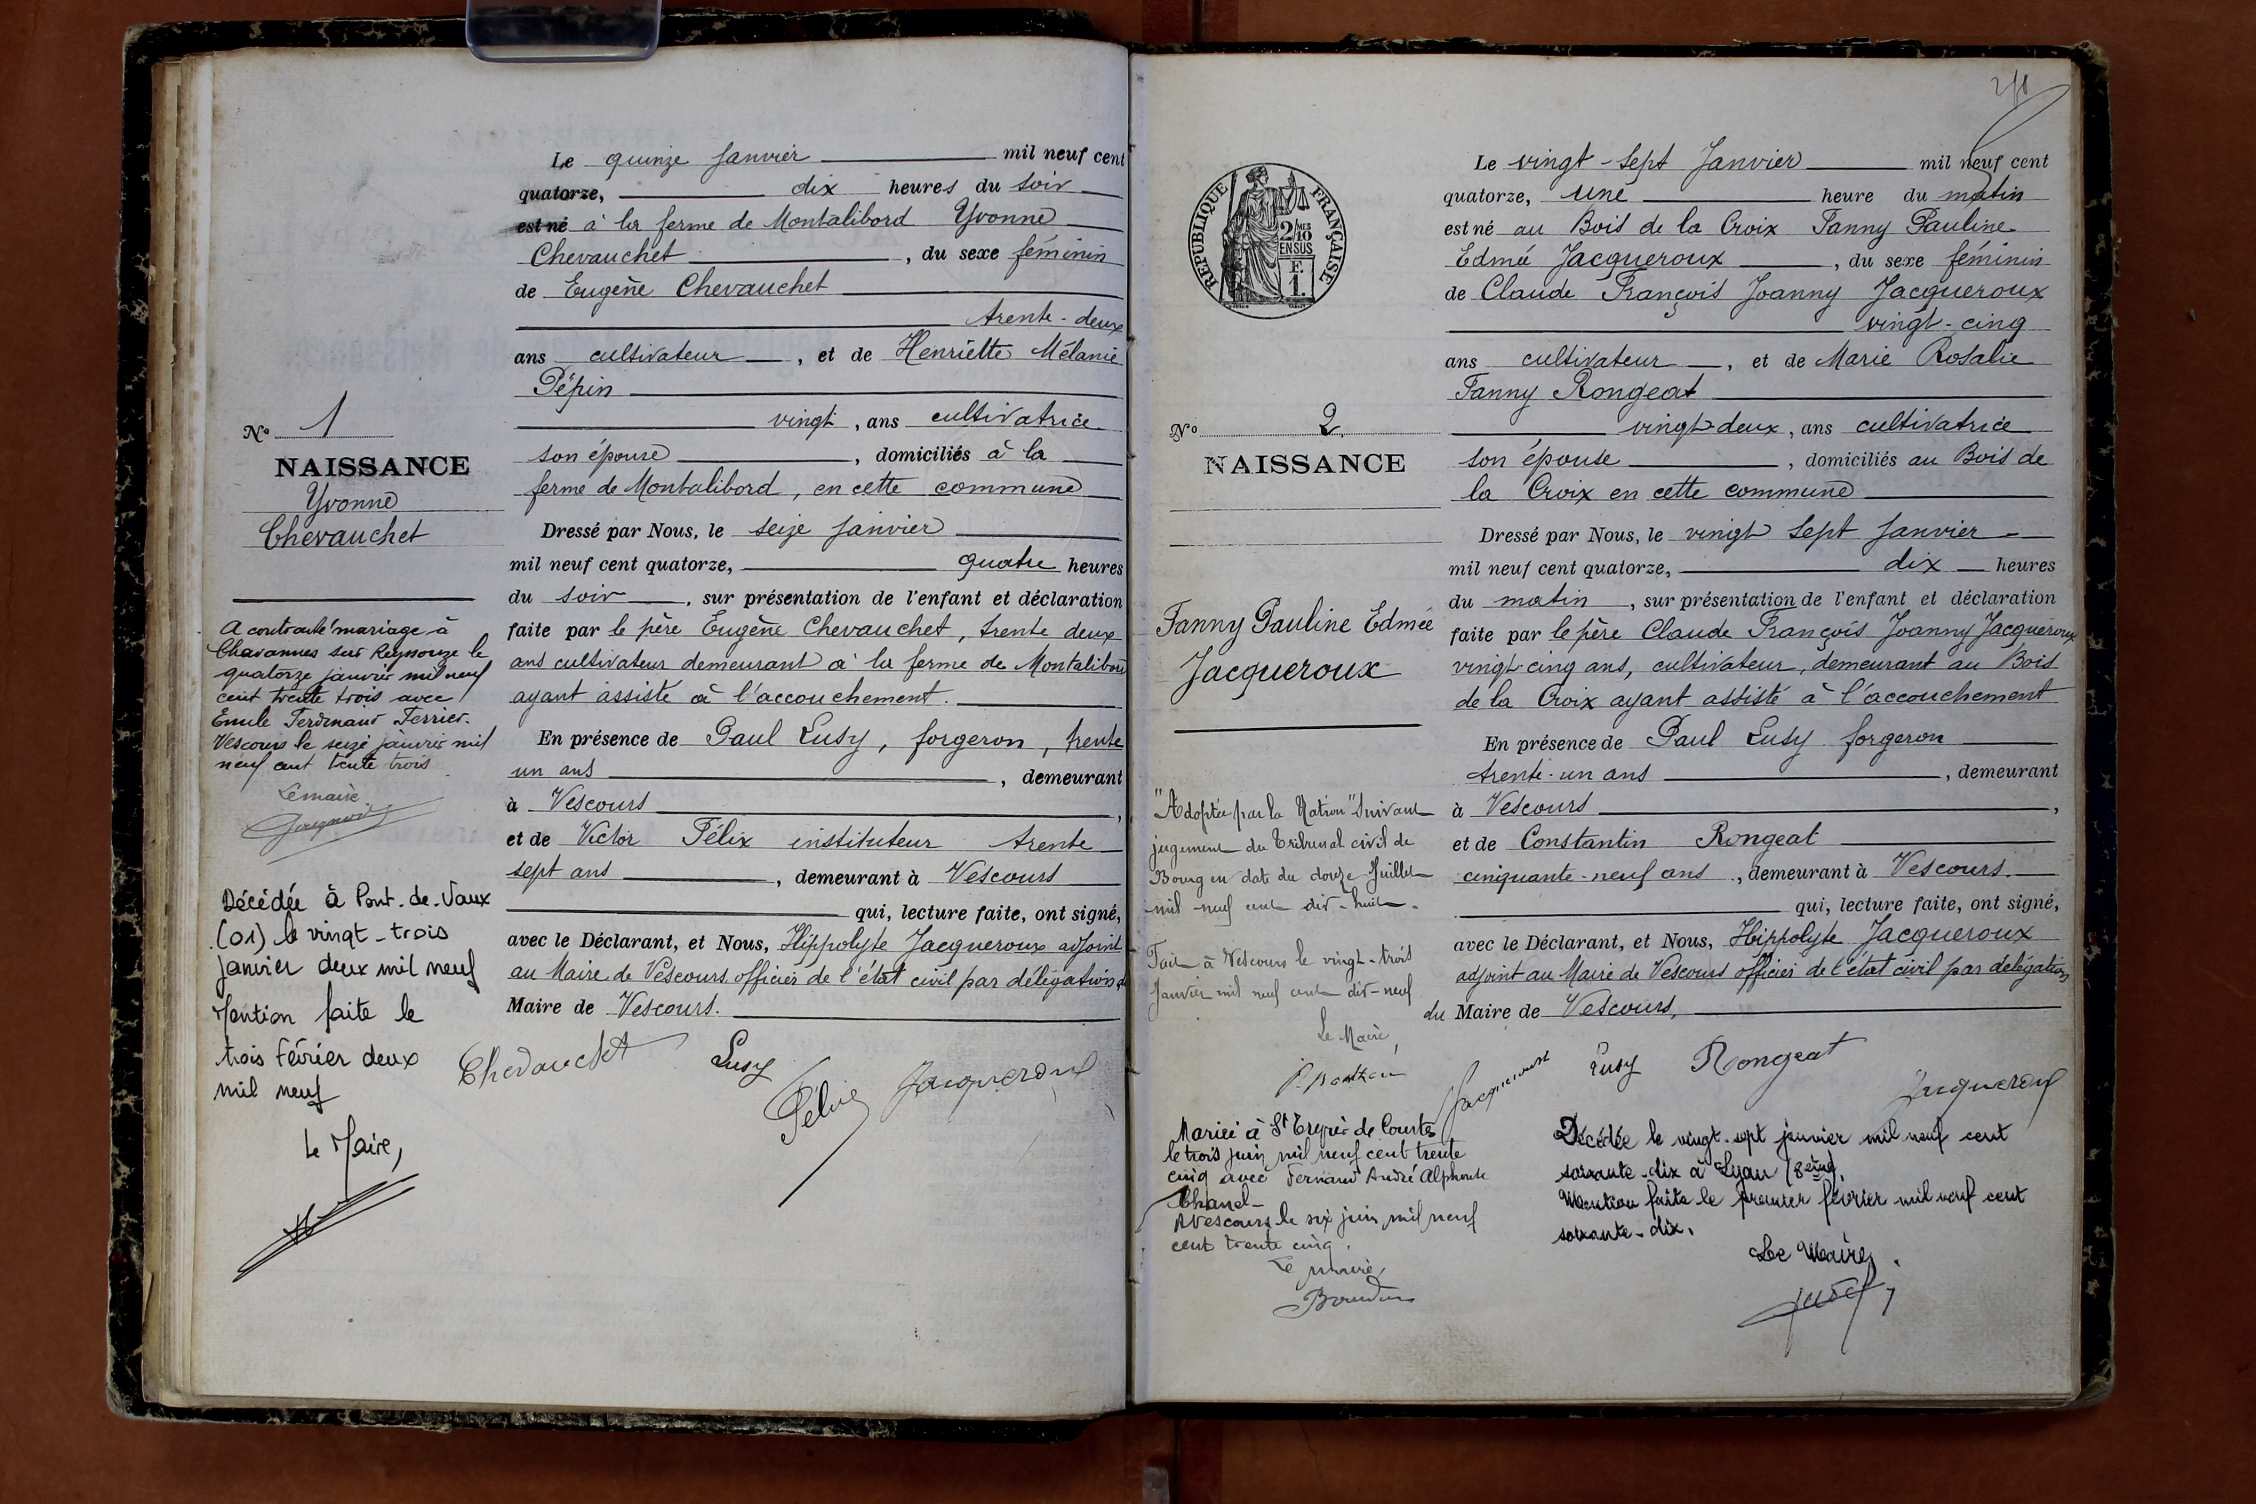 Le quinze Janvier mil neuf cent
quatorze, dix heures du soir
est né à la ferme de Montalibord Yvonne
Chevauchet, du sexe féminin
de Eugène Chevauchet
trente-deux
ans cultivateur, et de Henriette Mélanie
Pépin
vingt, ans cultivatrice
son épouse, domiciliés à la
ferme de Montalibord, en cette commune
Dressé par Nous, le seize Janvier
mil neuf cent quatorze, quatre heures
du soir, sur présentation de l'enfant et déclaration
faite par le père Eugène Chevauchet, trente deux
ans cultivateur demeurant à la ferme de Montalibord
ayant assisté à l'accouchement.
En présence de Paul Lusy, forgeron, trente
un ans, demeurant
à Vescours,
et de Victor Félix instituteur trente
sept ans, demeurant à Vescours
qui, lecture faite, ont signé,
avec le Déclarant, et Nous, Hippolyte Jacqueroux adjoint
au Maire de Vescours officier de l'état civil par délégation du
Maire de Vescours.
Chevauchet Lusy Félix Jacqueroux
No 1
NAISSANCE
Yvonne
Chevauchet
A contracté mariage à
Chavannes sur Reyssouze le
quatorze janvier mil neuf
cent trente trois avec
Emile Ferdinand Ferrier.
Vescours le seize janvier mil
neuf cent trente trois
Le maire.
Décédée à Pont-de-Vaux
(01) le vingt-trois
janvier deux mil neuf
Mention faite le
trois Février deux
mil neuf
Le Maire,
Le vingt-sept Janvier mil neuf cent
quatorze, une heure du matin
est né au Bois de la Croix Fanny Pauline
Edmée Jacqueroux, du sexe féminin
de Claude François Joanny Jacqueroux
vingt-cinq
ans cultivateur, et de Marie Rosalie
Fanny Rongeat
vingt-deux, ans cultivatrice
son épouse, domiciliés au Bois de
la Croix en cette commune
Dressé par Nous, le vingt sept Janvier
mil neuf cent quatorze, dix heures
du matin, sur présentation de l'enfant et déclaration
faite par le père Claude François Joanny Jacqueroux
vingt-cinq ans, cultivateur, demeurant au Bois
de la Croix ayant assisté à l'accouchement
En présence de Paul Lusy forgeron
trente-un ans, demeurant
à Vescours,
et de Constantin Rongeat
cinquante-neuf ans, demeurant à Vescours.
qui, lecture faite, ont signé,
avec le Déclarant, et Nous, Hippolyte Jacqueroux
adjoint au Maire de Vescours officier de l'état civil par délégation
du Maire de Vescours,
Jacqueroux Lusy Rongeat Jacqueroux
RÉPUBLIQUE FRANÇAISE
2/10 MES
EN SUS
F.
1.
No 2
NAISSANCE
Fanny Pauline Edmée
Jacqueroux
"Adoptée par la Nation" suivant
jugement du Tribunal civil de
Bourg en date du douze Juillet
mil neuf cent dix-huit.
Fait à Vescours le vingt-trois
Janvier mil neuf cent dix-neuf
Le Maire,
Mariée à St Trivier de Courtes
le trois juin mil neuf cent trente
cinq avec Fernand André Alphonse
Chanel-
A Vescours le six juin mil neuf
cent trente cinq.
Le maire,
Décédée le vingt-sept janvier mil neuf cent
soixante-dix à Lyon (8ème).
Mention faite le premier février mil neuf cent
soixante-dix.
Le Maire,